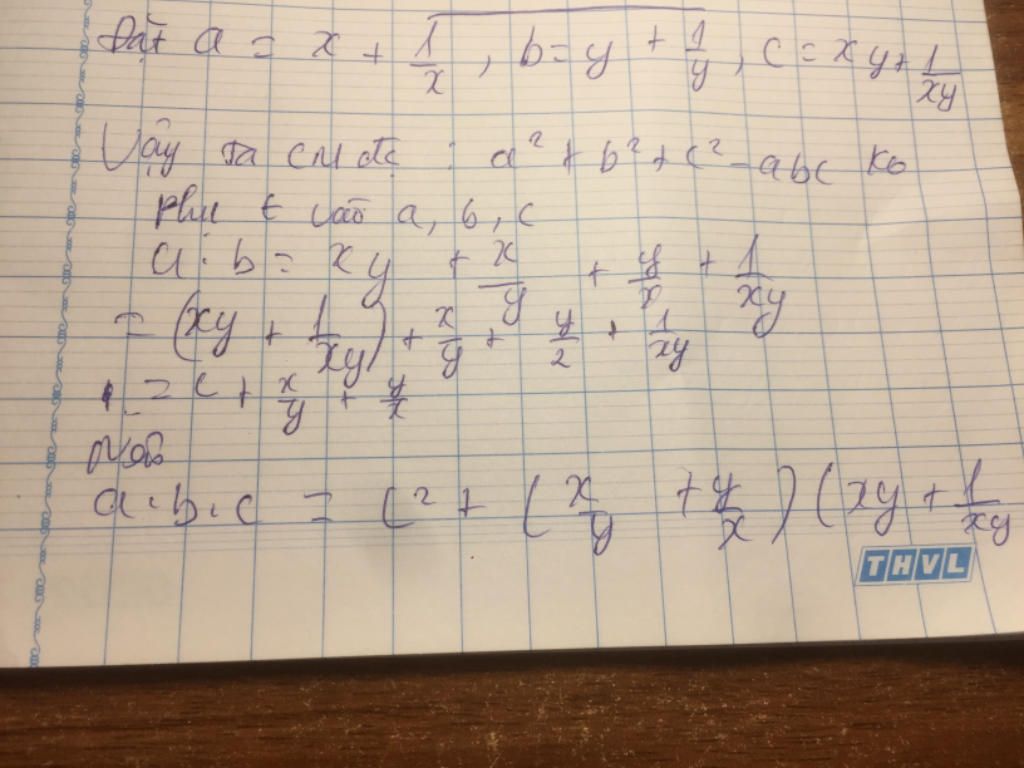 Đặt a = x + 1/x, b = y + 1/y, c = xy + 1/xy
Vậy ta cm đc : a² + b² + c² - abc ko
phụ t vào a, b, c
a . b = xy + x/y + y/x + 1/xy
= (xy + 1/xy) + x/y + y/2 + 1/xy
= c + x/y + y/x
a.b.c = c² + (x/y + y/x)(xy + 1/xy
THVL